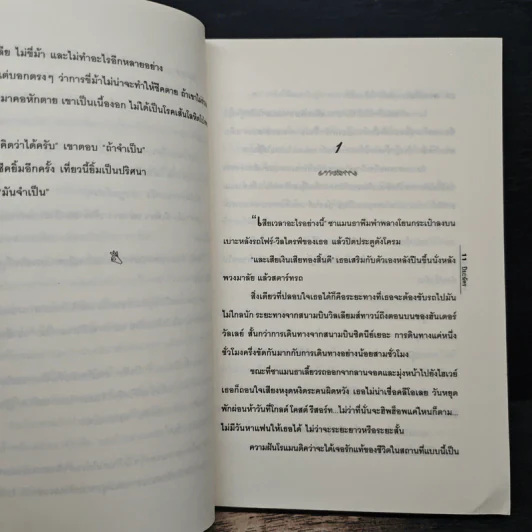 ไม่ขี่ม้า และไม่ทำอะไรอีกหลายอย่าง
บอกตรงๆ ว่าการขี่ม้าไม่น่าจะทำให้ชีคตาย ถ้าเขาไม่
มาคอหักตาย เขาเป็นเนื้องอก ไม่ได้เป็นโรคเส้นโลหิต
คิดว่าได้ครับ" เขาตอบ "ถ้าจำเป็น"
ชีคยิ้มอีกครั้ง เที่ยวนี้ยิ้มเป็นปริศนา
"มันจำเป็น"
1
"เสียเวลาอะไรอย่างนี้" ซาแมนธาพึมพำพลางโยนกระเป๋าลงบน
เบาะหลังรถโฟร์-วีลไดรฟ์ของเธอ แล้วปิดประตูดังโครม
"และเสียเงินเสียทองสิ้นดี" เธอเสริมกับตัวเองหลังปีนขึ้นนั่งหลัง
พวงมาลัย แล้วสตาร์ทรถ
สิ่งเดียวที่ปลอบใจเธอได้ก็คือระยะทางที่เธอจะต้องขับรถไปมัน
ไม่ไกลนัก ระยะทางจากสนามบินวิลเลียมส์ทาวน์ถึงตอนบนของฮันเตอร์
วัลเลย์ สั้นกว่าการเดินทางจากสนามบินซิดนีย์เยอะ การเดินทางแค่หนึ่ง
ชั่วโมงครึ่งขัดกันมากกับการเดินทางอย่างน้อยสามชั่วโมง
ขณะที่ซาแมนธาเลี้ยวรถออกจากลานจอดและมุ่งหน้าไปยังไฮเวย์
เธอก็ถอนใจเสียงหงุดหงิดระคนผิดหวัง เธอไม่น่าเชื่อคลีโอเลย วันหยุด
พักผ่อนห้าวันที่โกลด์ โคสต์ รีสอร์ท...ไม่ว่าที่นั่นจะฮิพฮ็อพแค่ไหนก็ตาม...
ไม่มีวันหาแฟนให้เธอได้ ไม่ว่าจะระยะยาวหรือระยะสั้น
ความฝันโรแมนติคว่าจะได้เจอรักแท้ของชีวิตในสถานที่แบบนี้เป็น
11